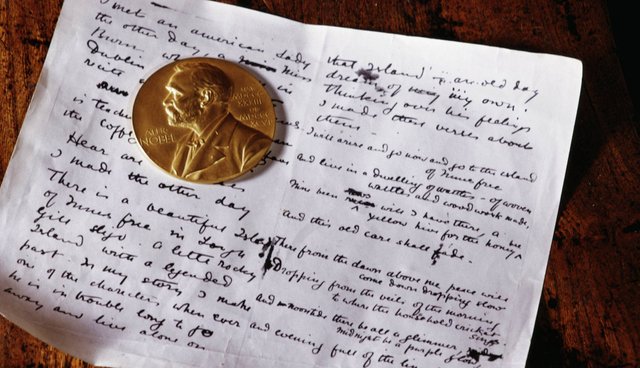 I met an american Lady
the other day, a Miss
Dublin
in
the
Hear are
I made the other day
There is a beautiful Island
of Innis free in Lough
Gill Sligo. A little rocky
Island with a legended
past. In my story I make
one of the charecters when ever
he is in trouble long to go
away and live alone on
ALFR·
NOBEL
NAT·
MDCCC
XXXIII
OB·
MDCCC
XCVI
that Island an old day
dream of my own.
Thinking over his feelings
I made these verses about
them -
I will arise and go now and go to the island
of Innis free
and live in a dwelling of wattles - of woven
wattles and wood work made,
Nine bean will I have there, a
yellow hive for the honey
And this old care shall fade.
There from the dawn above me peace will
come down dropping slow
Dropping from the veils of the morning
to where the household cricket
sings
And noontide there be all a glimmer
midnight be a purple glow
and evening full of the